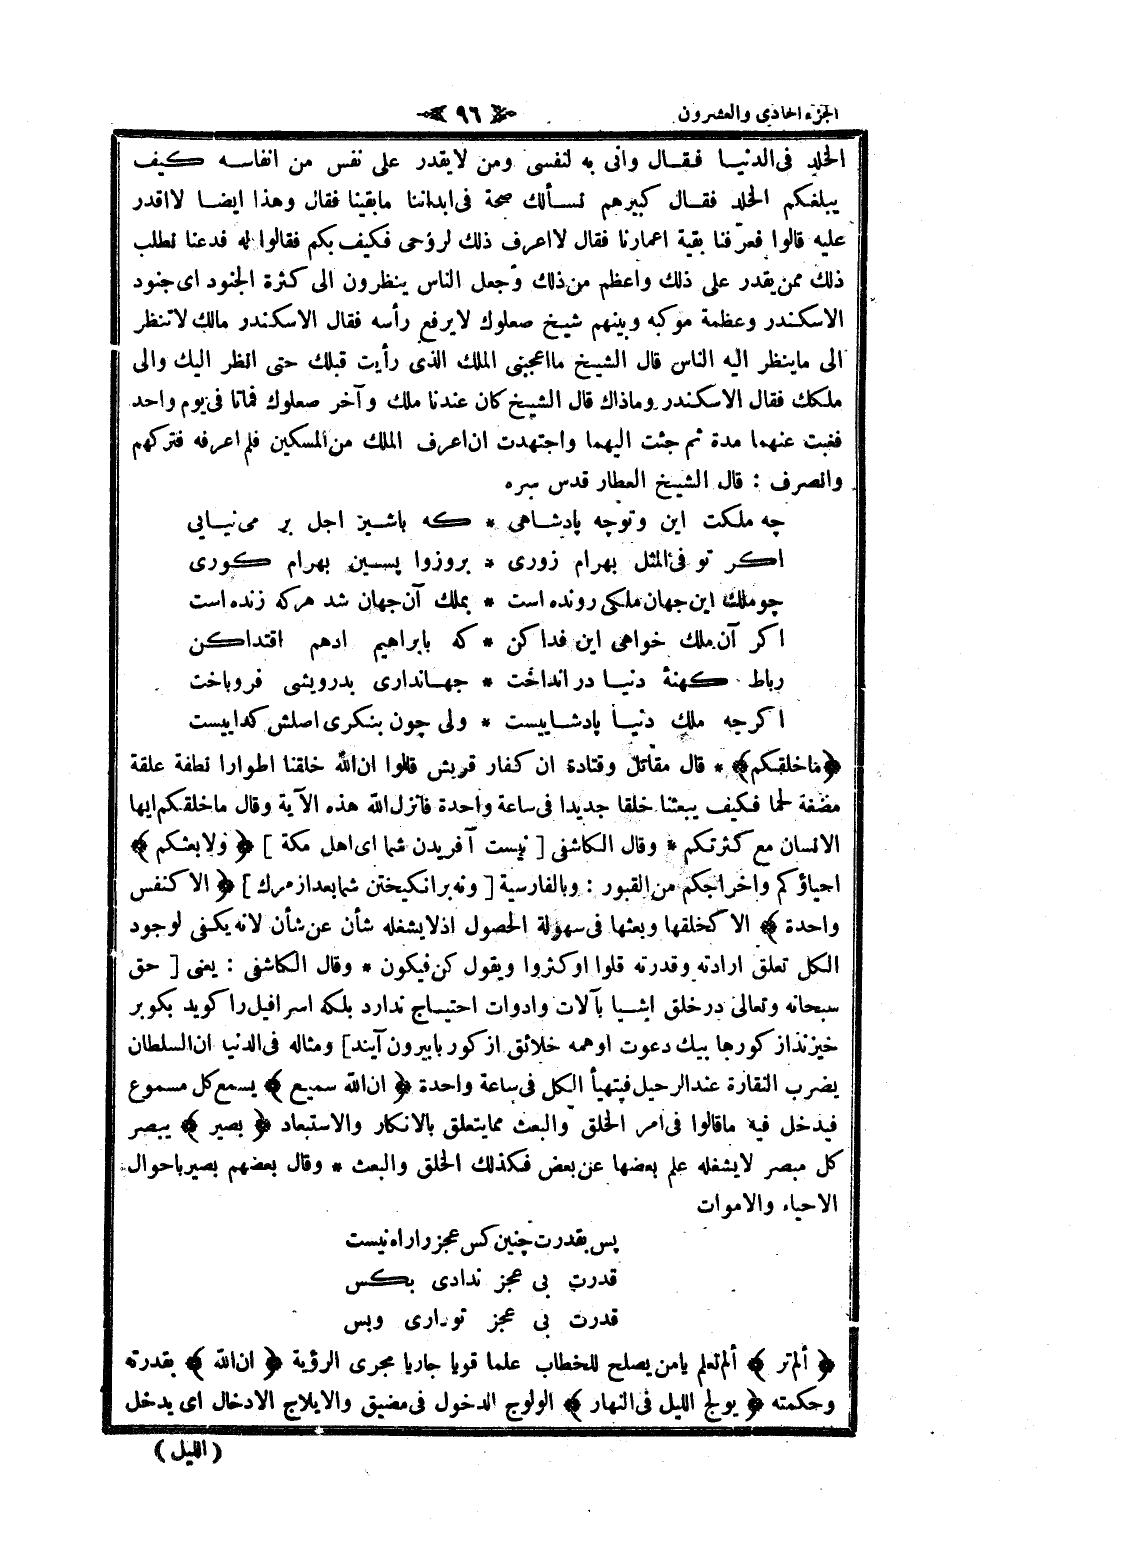 الجزء الحادى والعشرون ٩٦
الخلد فى الدنيا فقال وانى به لنفسى ومن لا يقدر على نفس من انفاسه كيف
يبلغكم الخلد فقال كبيرهم نسألك صحة فى ابداننا مابقينا فقال وهذا ايضا لا اقدر
عليه قالوا فعرّفنا بقية اعمارنا فقال لا اعرف ذلك لروحى فكيف بكم فقالوا له فدعنا نطلب
ذلك ممن يقدر على ذلك واعظم من ذلك وجعل الناس ينظرون الى كثرة الجنود اى جنود
الاسكندر وعظمة موكبه وبينهم شيخ صعلوك لا يرفع رأسه فقال الاسكندر مالك لا تنظر
الى ما ينظر اليه الناس قال الشيخ ما اعجبنى الملك الذى رأيت قبلك حتى انظر اليك والى
ملكك فقال الاسكندر وماذاك قال الشيخ كان عندنا ملك وآخر صعلوك فماتا فى يوم واحد
فغبت عنهما مدة ثم جئت اليهما واجتهدت ان اعرف الملك من المسكين فلم اعرفه فتركهم
وانصرف : قال الشيخ العطار قدس سره
چه ملكت اين وتوچه پادشاهى * كه باشيز اجل بر مى نيايى
اكر تو فى المثل بهرام زورى * بروزوا پسين بهرام كورى
چو ملك اين جهان ملكى رونده است * بملك آن جهان شد هركه زنده است
اكر آن ملك خواهى اين فدا كن * كه با براهيم ادهم اقتدا كن
رباط كهنۀ دنيا در انداخت * جهاندارى بدرويشى فروباخت
اكرچه ملك دنيا پادشاييست * ولى چون بنكرى اصلش كداييست
﴿ ما خلقكم ﴾ * قال مقاتل وقتادة ان كفار قريش قالوا ان الله خلقنا اطوارا نطفة علقة
مضغة لحما فكيف يبعثنا خلقا جديدا فى ساعة واحدة فانزل الله هذه الآية وقال ما خلقكم ايها
الانسان مع كثرتكم * وقال الكاشفى [ نيست آفريدن شما اى اهل مكة ] ﴿ ولا بعثكم ﴾
احياؤكم واخراجكم من القبور : وبالفارسية [ ونه برانكيختن شما بعد از مرك ] ﴿ الا كنفس
واحدة ﴾ الا كخلقها وبعثها فى سهولة الحصول اذ لا يشغله شأن عن شأن لانه يكفى لوجود
الكل تعلق ارادته وقدرته قلوا او كثروا ويقول كن فيكون * وقال الكاشفى : يعنى [ حق
سبحانه وتعالى در خلق اشيا بآلات وادوات احتياج ندارد بلكه اسرافيل را كويد بكوبر
خيزنداز كورها بيك دعوت او همه خلائق از كور با بيرون آيند ] ومثاله فى الدنيا ان السلطان
يضرب النقارة عند الرحيل فيتهيأ الكل فى ساعة واحدة ﴿ ان الله سميع ﴾ يسمع كل مسموع
فيدخل فيه ما قالوا فى امر الخلق والبعث مما يتعلق بالانكار والاستبعاد ﴿ بصير ﴾ يبصر
كل مبصر لا يشغله علم بعضها عن بعض فكذلك الخلق والبعث * وقال بعضهم بصير باحوال
الاحياء والاموات
پس بقدرت چنين كس عجز را راه نيست
قدرت بى عجز ندادى بكس
قدرت بى عجز تو دارى وبس
﴿ ألم تر ﴾ ألم تعلم يا من يصلح للخطاب علما قويا جاريا مجرى الرؤية ﴿ ان الله ﴾ بقدرته
وحكمته ﴿ يولج الليل فى النهار ﴾ الولوج الدخول فى مضيق والايلاج الادخال اى يدخل
( الليل )